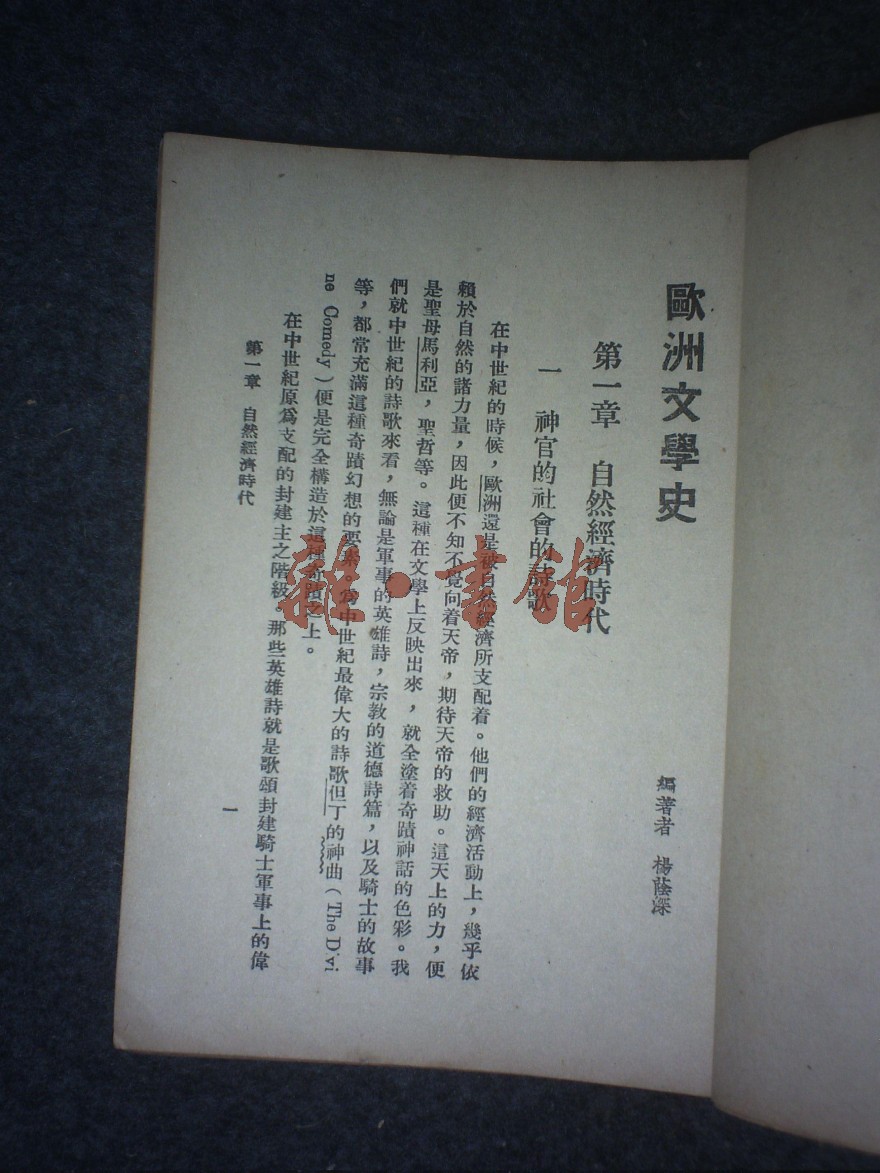 歐洲文學史
編著者 楊蔭深
第一章 自然經濟時代
一 神官的社會的詩歌
在中世紀的時候，歐洲還是被自然經濟所支配着。他們的經濟活動上，幾乎依
賴於自然的諸力量，因此便不知不覺向着天帝，期待天帝的救助。這天上的力，便
是聖母馬利亞，聖哲等。這種在文學上反映出來，就全塗着奇蹟神話的色彩。我
們就中世紀的詩歌來看，無論是軍事的英雄詩，宗教的道德詩篇，以及騎士的故事
等，都常充滿這種奇蹟幻想的要素。為中世紀最偉大的詩歌但丁的神曲（The Divi
ne Comedy）便是完全構造於這種奇蹟之上。
在中世紀原為支配的封建主之階級。那些英雄詩就是歌頌封建騎士軍事上的偉
第一章 自然經濟時代
一
雜·書館